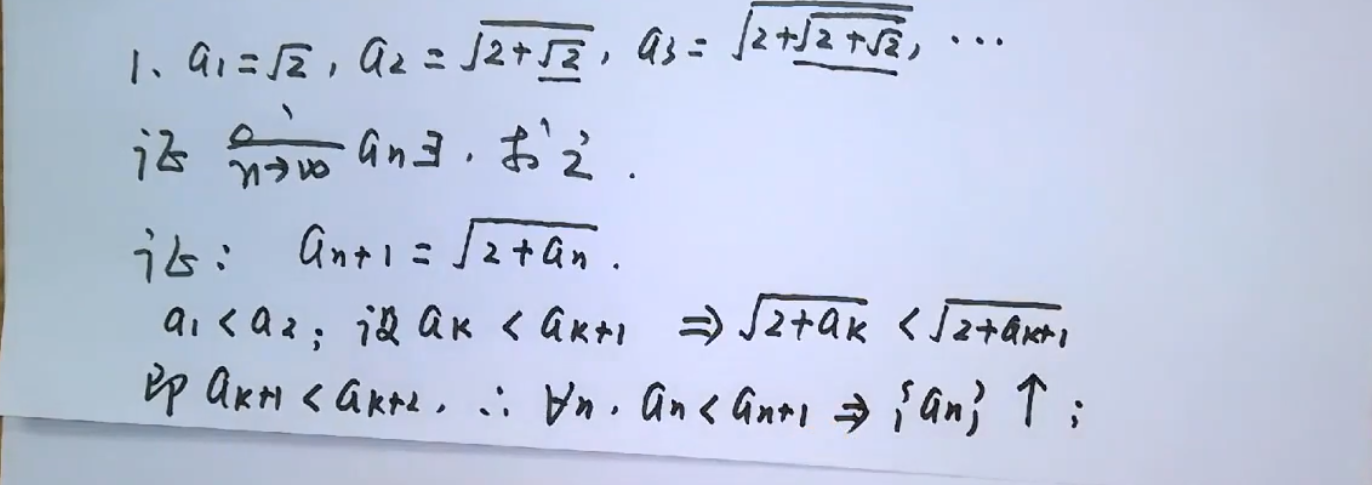 1、a₁=√2, a₂=√(2+√2), a₃=√(2+√(2+√2)), ⋯
证 lim n→∞ aₙ∃. 求之.
证: aₙ₊₁=√(2+aₙ).
a₁<a₂; 设 aₖ<aₖ₊₁ ⇒ √(2+aₖ)<√(2+aₖ₊₁)
即 aₖ₊₁<aₖ₊₂. ∴ ∀n. aₙ<aₙ₊₁ ⇒ {aₙ}↑;